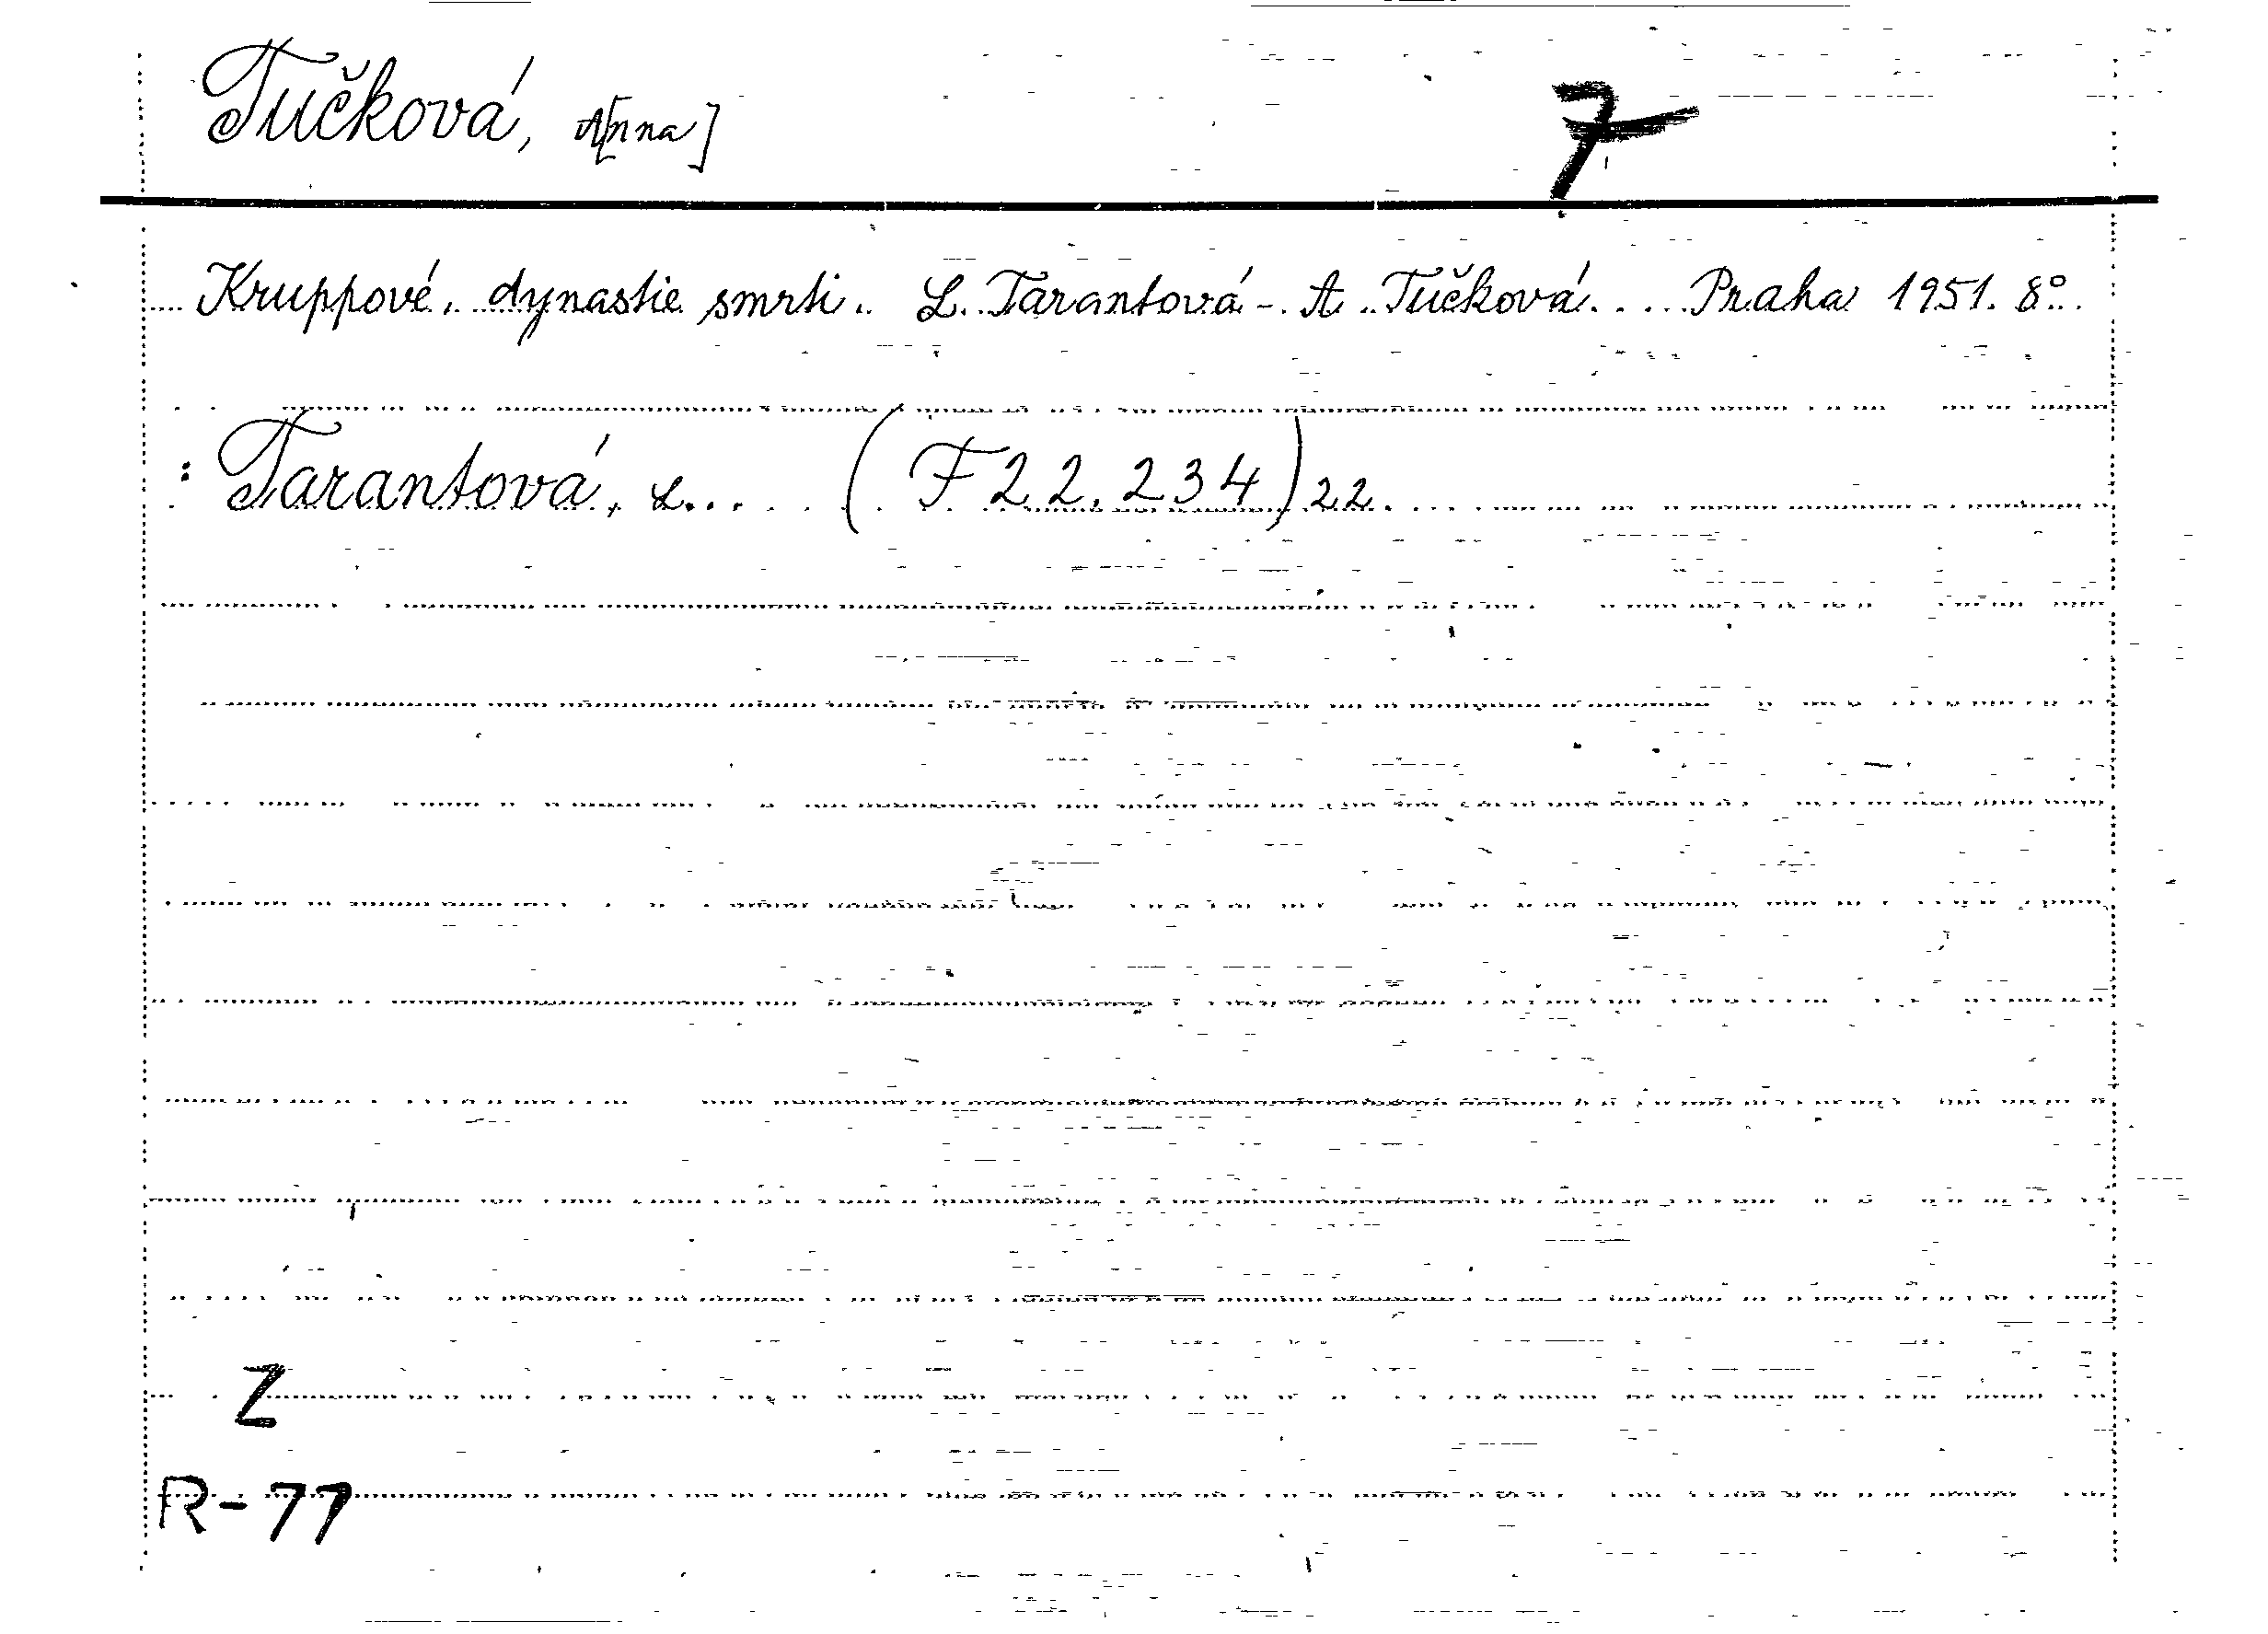 Tučková, A[nna] 7
Kruppové, dynastie smrti. L. Tarantová - A. Tučková.... Praha 1951. 8°.
: Tarantová, L... (F 22.234) 22.
Z
R-77